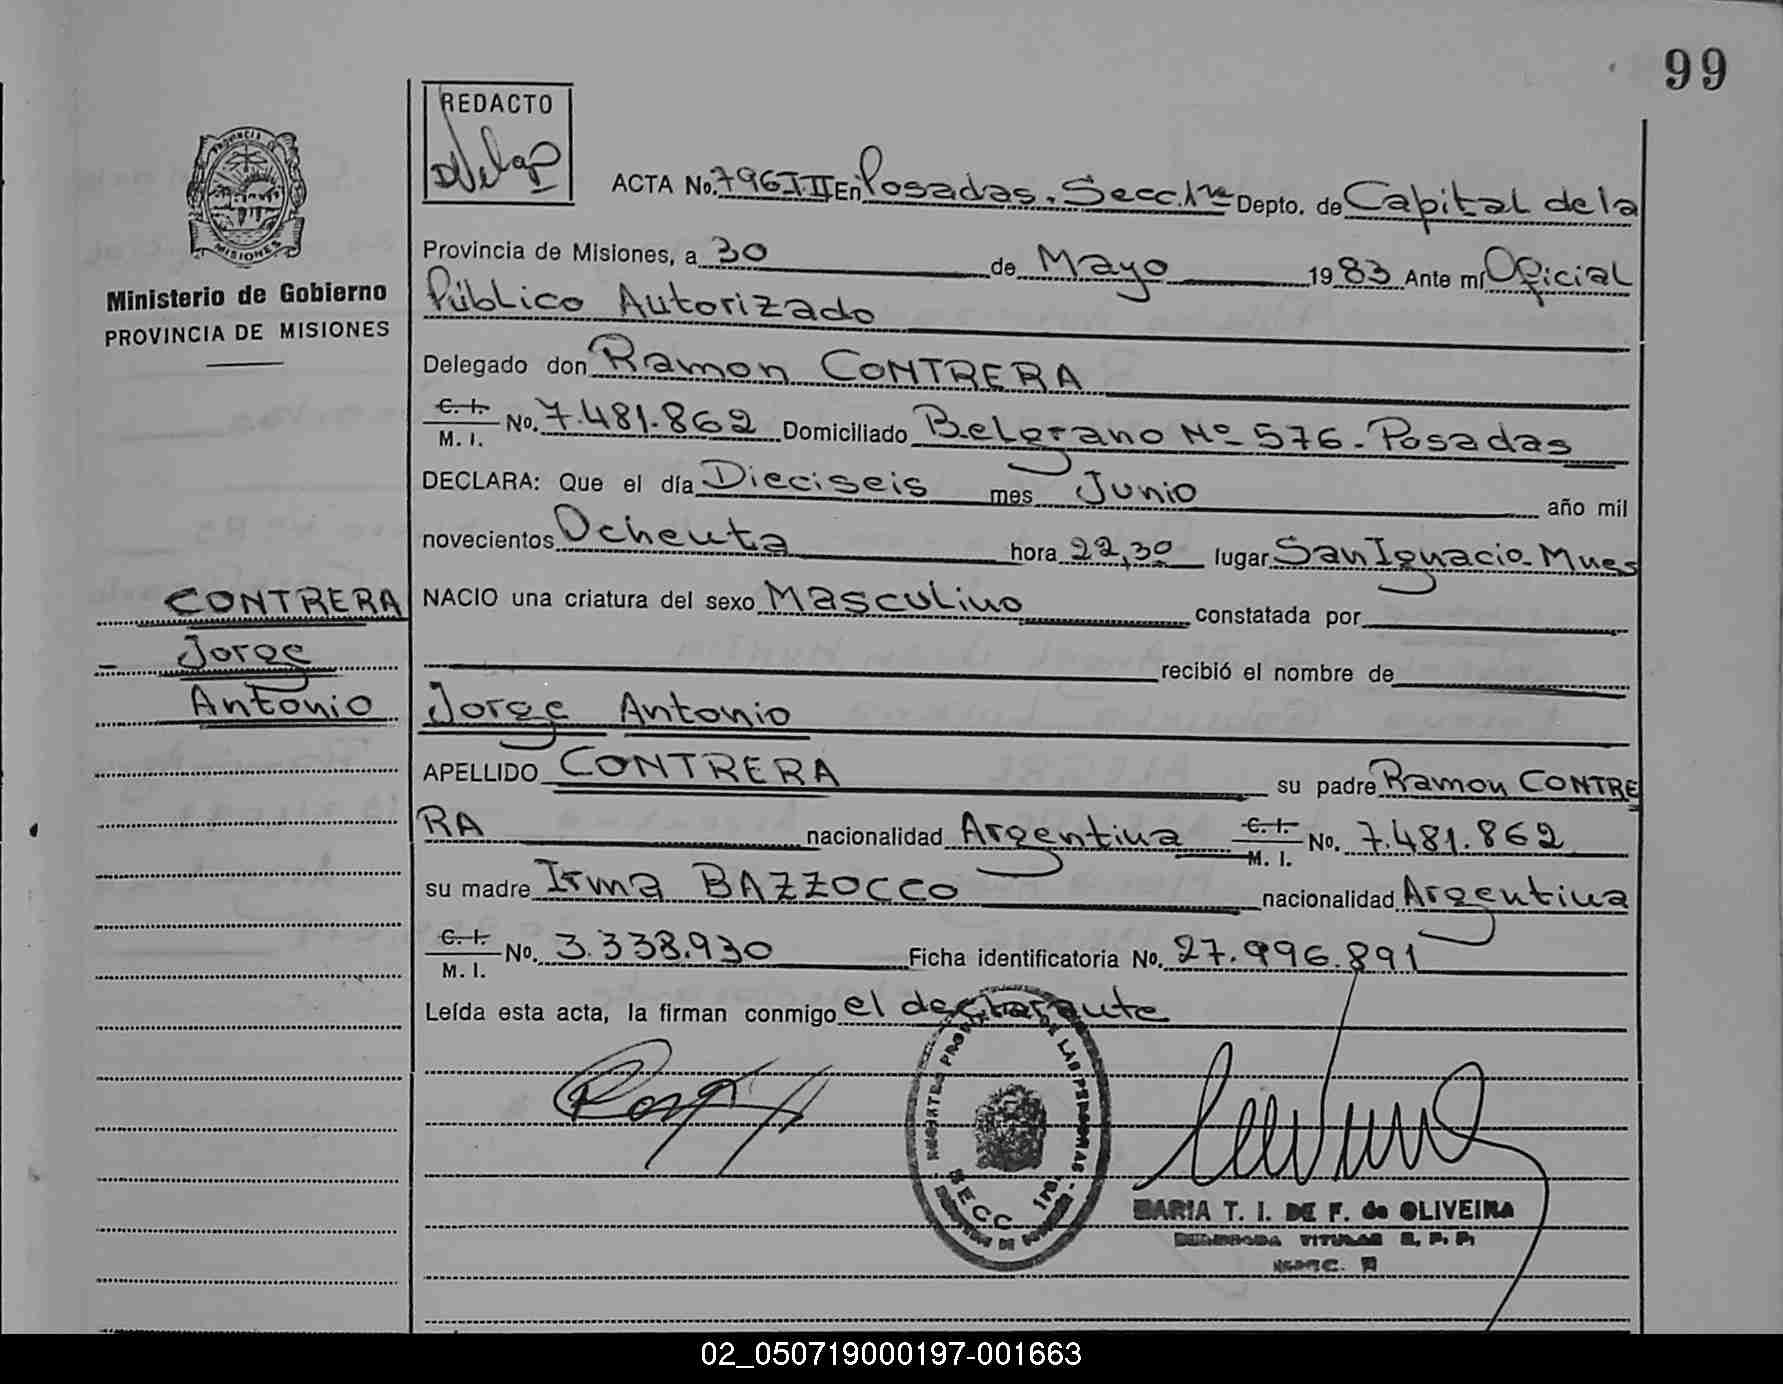 99
REDACTO
PROVINCIA DE
MISIONES
Ministerio de Gobierno
PROVINCIA DE MISIONES
ACTA No. 796 T. II En Posadas. Secc. 1ra Depto. de Capital de la
Provincia de Misiones, a 30 de Mayo 1983 Ante mí Oficial
Público Autorizado
Delegado don Ramon CONTRERA
C. I. / M. I. No. 7.481.862 Domiciliado Belgrano Nº 576 - Posadas
DECLARA: Que el día Dieciseis mes Junio año mil
novecientos Ochenta hora 22,30 lugar San Ignacio - Mnes
NACIO una criatura del sexo Masculino constatada por
recibió el nombre de
Jorge Antonio
APELLIDO CONTRERA su padre Ramon CONTRE
RA nacionalidad Argentina C. I. / M. I. No. 7.481.862
su madre Irma BAZZOCCO nacionalidad Argentina
C. I. / M. I. No. 3.338.930 Ficha identificatoria No. 27.996.891
Leída esta acta, la firman conmigo el declarante
CONTRERA
Jorge
Antonio
DE LAS PERSONAS
SECC 1ra
MARIA T. I. DE F. de OLIVEIRA
TITULAR R. P. P.
02_050719000197-001663